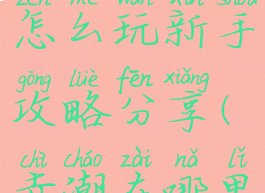 zěn me wán xīn shǒu
怎么玩新手
gōng lüè fēn xiǎng
攻略分享(
chì cháo zài nǎ lǐ
赤潮在哪里